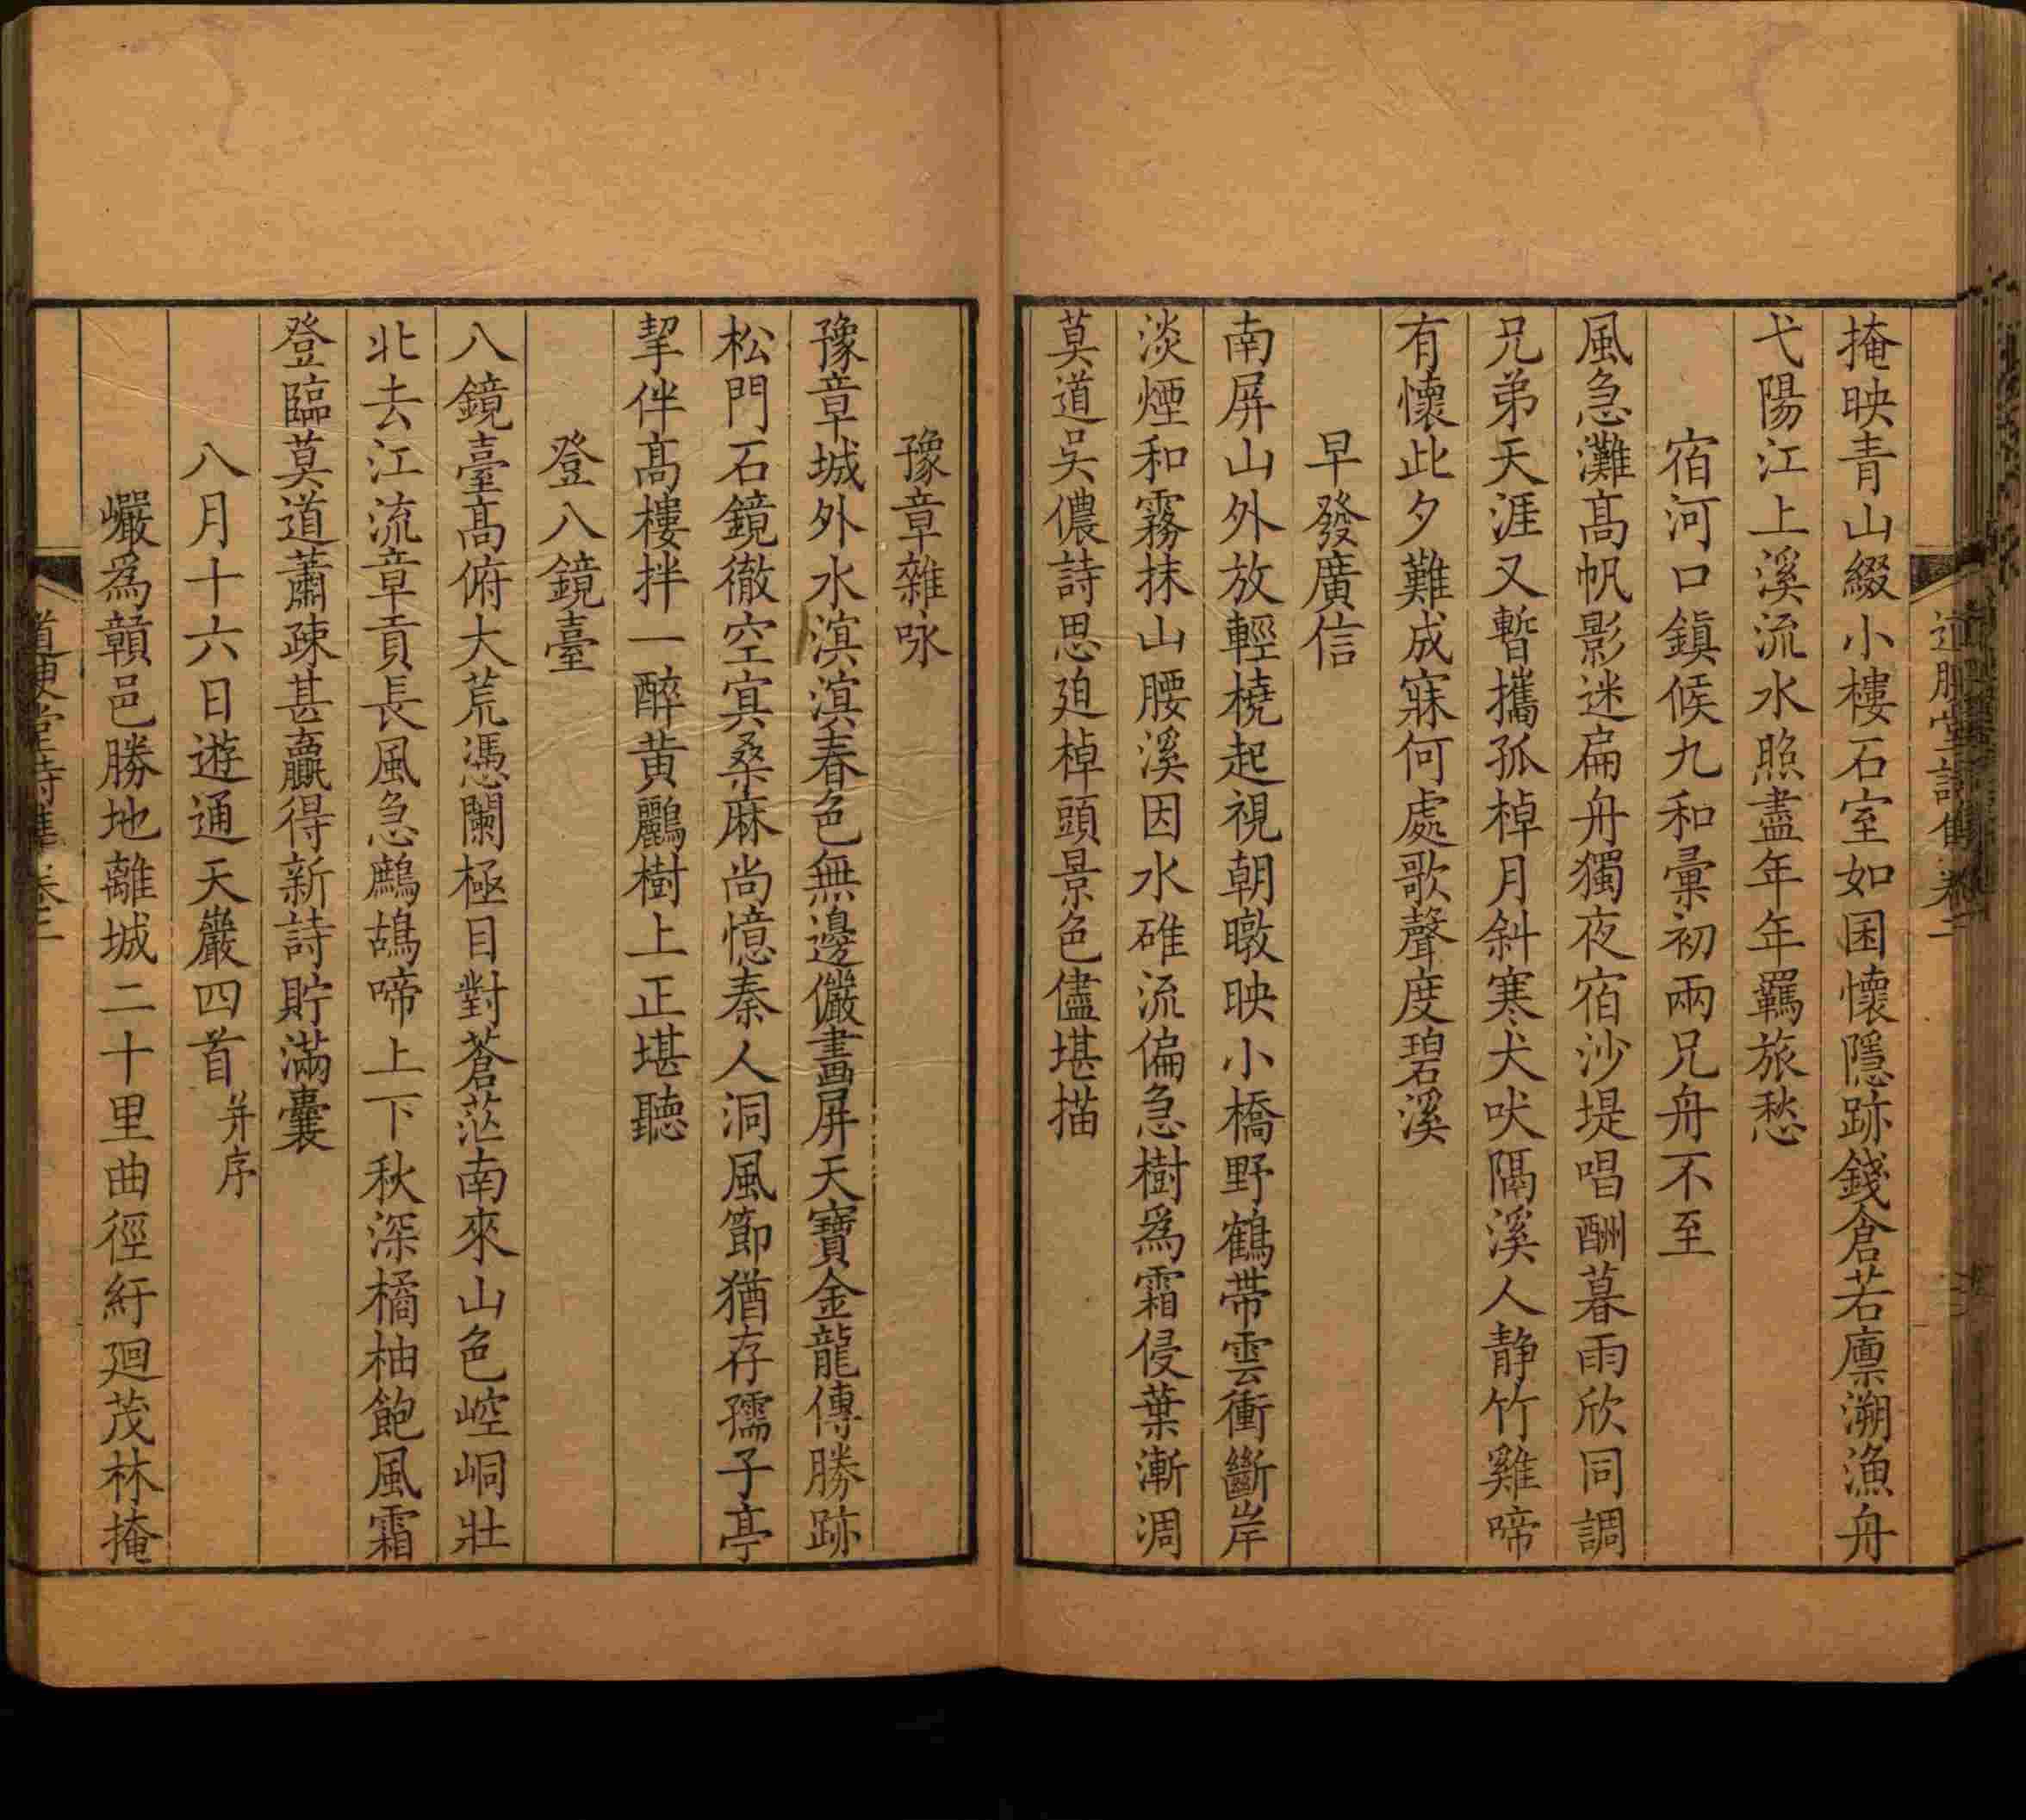 掩映青山綴小樓石室如困懷隱跡錢倉若廪溯漁舟
弋陽江上溪流水照盡年年羈旅愁
宿河口鎮候九和彙初兩兄舟不至
風急灘髙帆影迷扁舟獨夜宿沙堤唱酬暮雨欣同調
兄弟天涯又暫攜孤棹月斜寒犬吠隔溪人静竹雞啼
有懷此夕難成寐何處歌聲度碧溪
早發廣信
南屏山外放輕橈起視朝暾映小橋野鶴帶雲衝斷岸
淡煙和霧抹山腰溪因水碓流偏急樹爲霜侵葉漸凋
莫道吴儂詩思廹棹頭景色儘堪描
豫章雜咏
豫章城外水溟溟春色無邊儼畫屏天寶金龍傳勝跡
松門石鏡徹空寘桑麻尚憶秦人洞風節猶存孺子亭
挈伴髙樓拌一醉黄鸝樹上正堪聽
登八鏡臺
八鏡臺髙俯大荒憑闌極目對蒼茫南來山色崆峒壯
北去江流章貢長風急鷓鴣啼上下秋深橘柚飽風霜
登臨莫道蕭疎甚贏得新詩貯滿囊
八月十六日遊通天巖四首并序
巗爲贛邑勝地離城二十里曲徑紆廻茂林掩